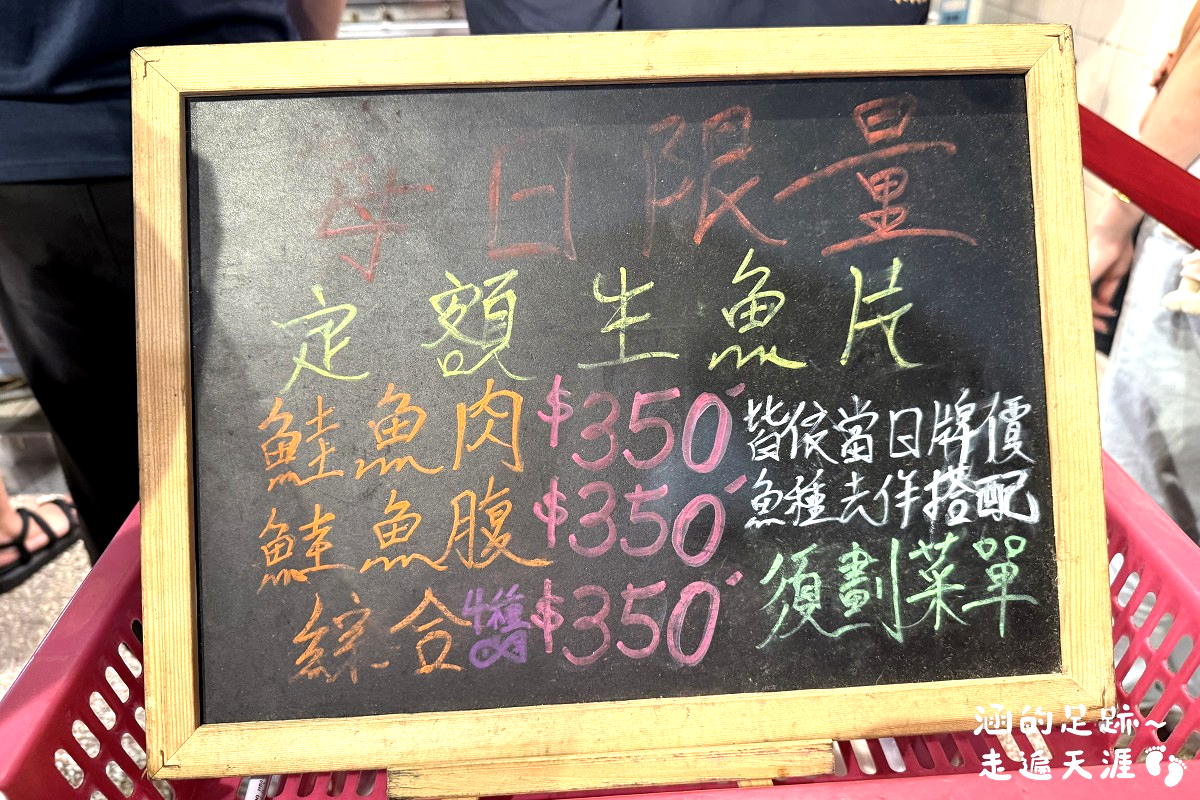 每日限量
定額生魚片
鮭魚肉 $350
鮭魚腹 $350
綜合4種 $350
皆依當日牌價
魚種去作搭配
須劃菜單
涵的足跡~
走遍天涯